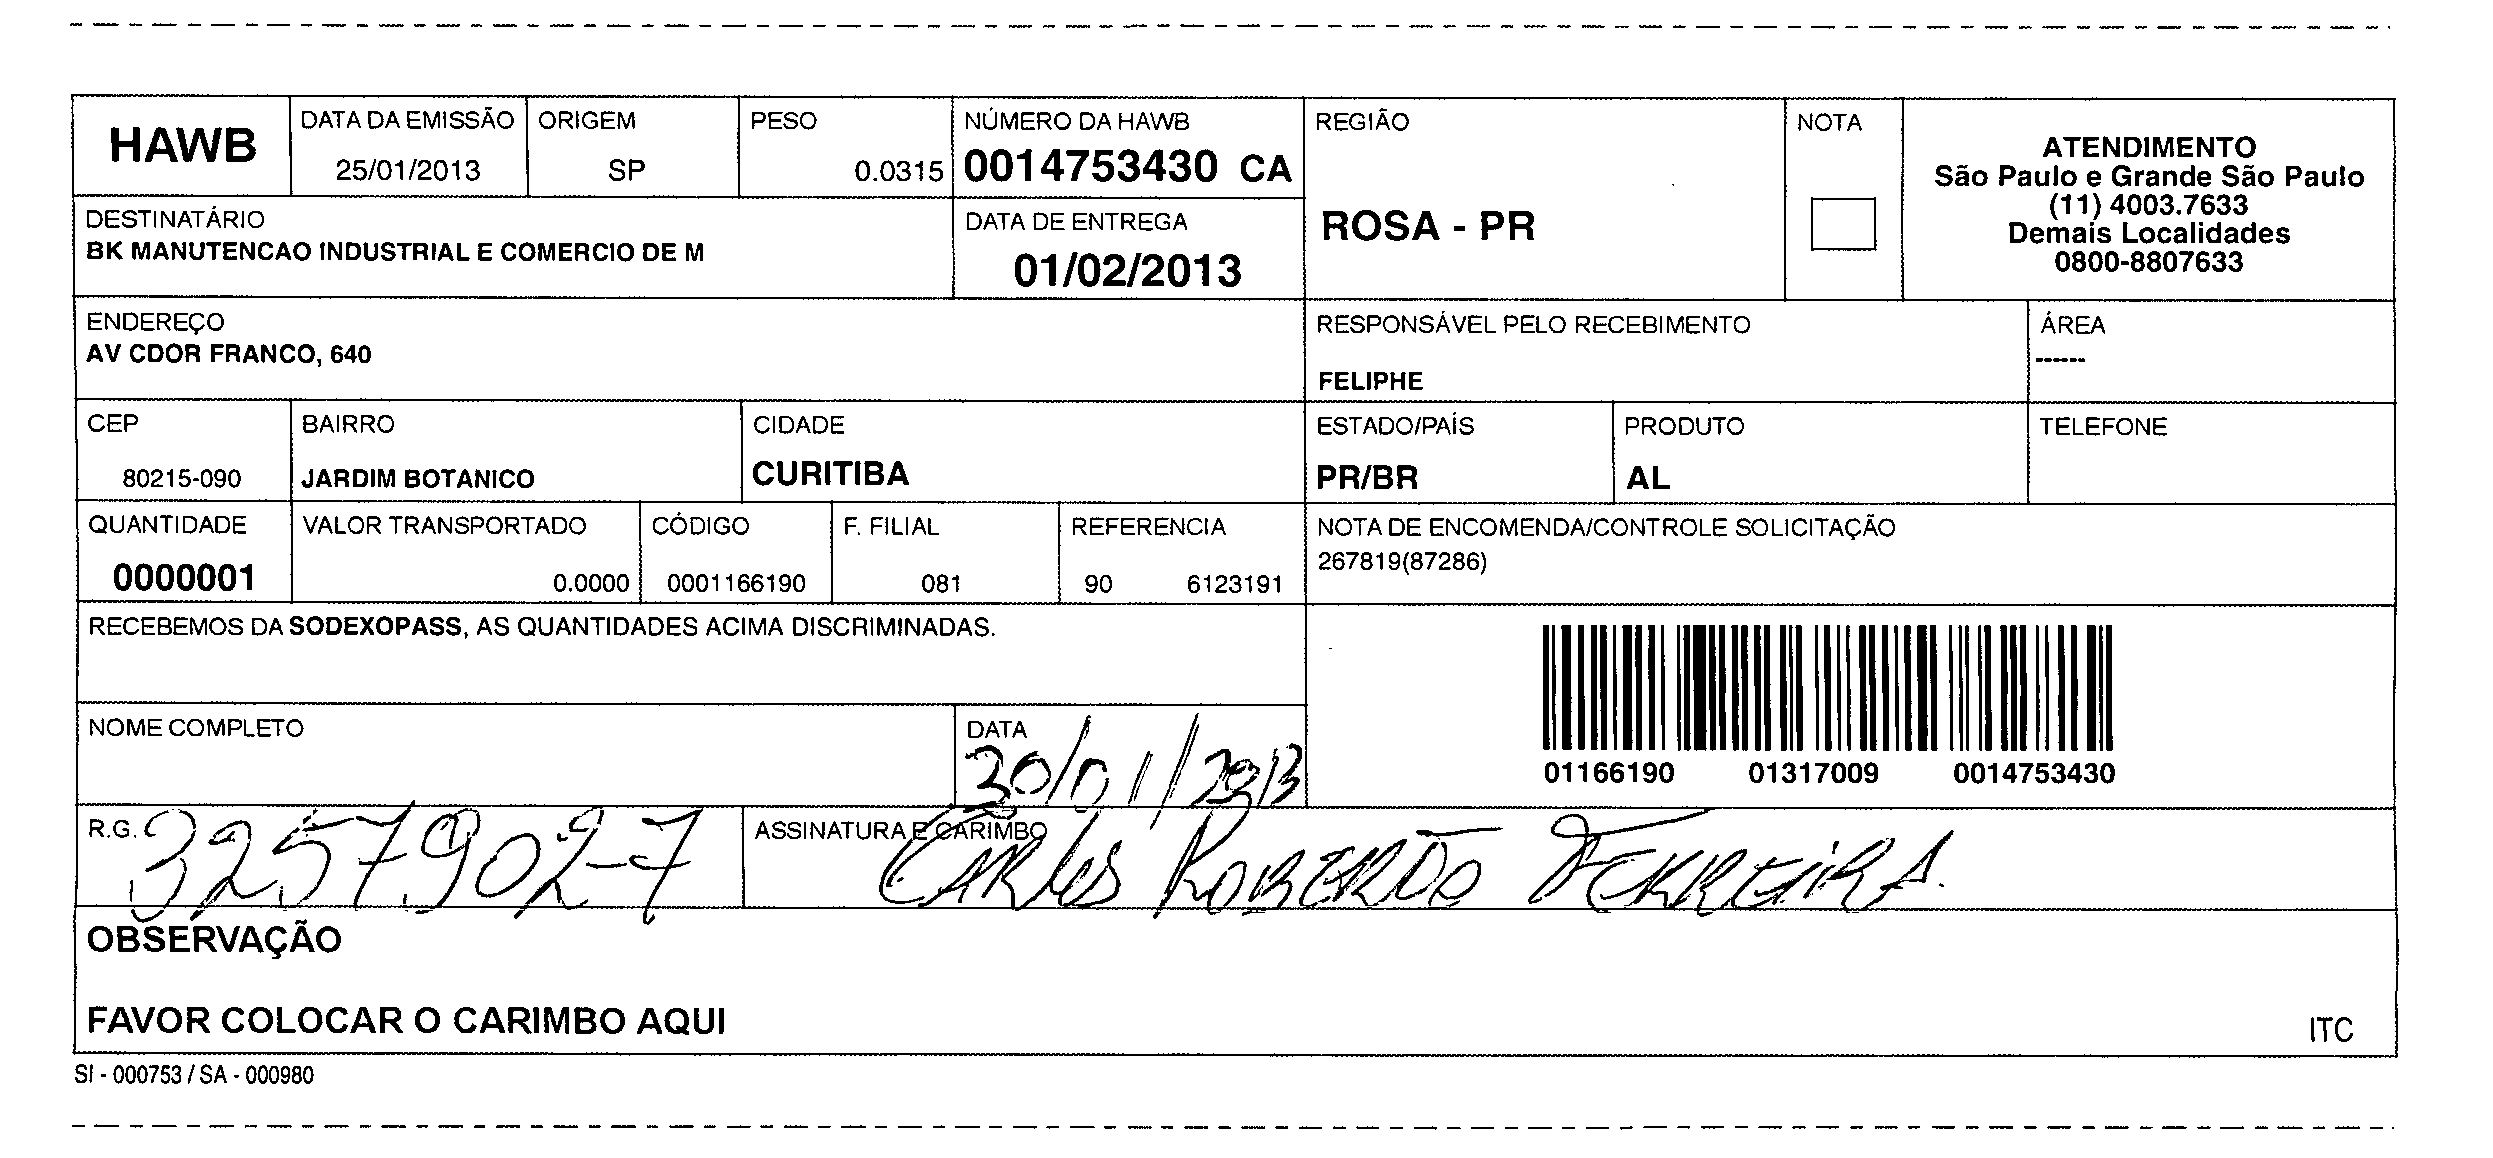 HAWB
DATA DA EMISSÃO
25/01/2013
ORIGEM
SP
PESO
0.0315
NÚMERO DA HAWB
0014753430 CA
REGIÃO
ROSA - PR
NOTA
ATENDIMENTO
São Paulo e Grande São Paulo
(11) 4003.7633
Demais Localidades
0800-8807633
DESTINATÁRIO
BK MANUTENCAO INDUSTRIAL E COMERCIO DE M
DATA DE ENTREGA
01/02/2013
ENDEREÇO
AV CDOR FRANCO, 640
RESPONSÁVEL PELO RECEBIMENTO
FELIPHE
ÁREA
------
CEP
80215-090
BAIRRO
JARDIM BOTANICO
CIDADE
CURITIBA
ESTADO/PAÍS
PR/BR
PRODUTO
AL
TELEFONE
QUANTIDADE
0000001
VALOR TRANSPORTADO
0.0000
CÓDIGO
0001166190
F. FILIAL
081
REFERENCIA
90 6123191
NOTA DE ENCOMENDA/CONTROLE SOLICITAÇÃO
267819(87286)
RECEBEMOS DA SODEXOPASS, AS QUANTIDADES ACIMA DISCRIMINADAS.
01166190 01317009 0014753430
NOME COMPLETO
DATA
30/01/2013
R.G.
3257902-7
ASSINATURA E CARIMBO
CARLOS ROBERTO FERREIRA.
OBSERVAÇÃO
FAVOR COLOCAR O CARIMBO AQUI
ITC
SI - 000753 / SA - 000980